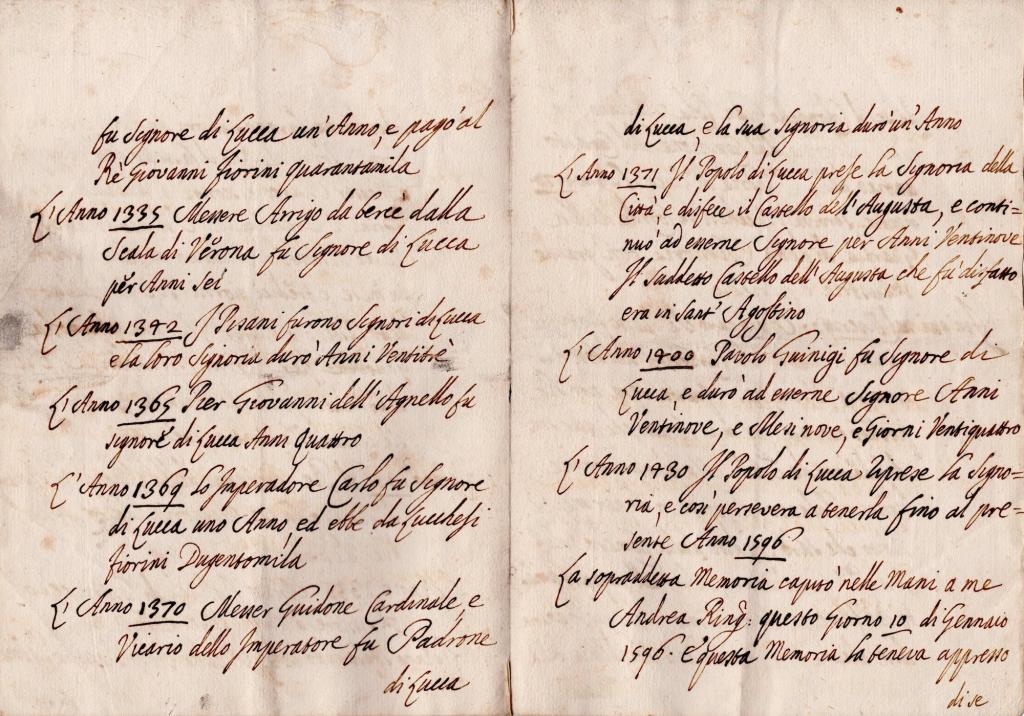 fu Signore di Lucca un'Anno, e pagò al
Rè Giovanni fiorini quarantamila
L'Anno 1335 Messere Arrigo da bercè dalla
Scala di Verona fu Signore di Lucca
per Anni Sei
L'Anno 1342 I Pisani furono Signori di Lucca
e la loro Signoria durò Anni Ventitrè
L'Anno 1365 Pier Giovanni dell'Agnello fu
signore di Lucca Anni quattro
L'Anno 1369 Lo Imperadore Carlo fu Signore
di Lucca uno Anno, ed ebbe da Lucchesi
fiorini Dugentomila
L'Anno 1370 Messer Guidone Cardinale, e
Vicario dello Imperatore fu Padrone
di Lucca
di Lucca, e la sua Signoria durò un'Anno
L'Anno 1371 Il Popolo di Lucca prese la Signoria della
Città e disfece il Castello dell'Augusta, e conti=
nuò ad esserne Signore per Anni Ventinove
Il suddetto Castello dell'Augusta, che fù disfatto
era in Sant'Agostino
L'Anno 1400 Pavolo Guinigi fu Signore di
Lucca, e durò ad esserne Signore Anni
Ventinove, e Mesi nove, e Giorni Ventiquattro
L'Anno 1430 Il Popolo di Lucca riprese la Signo=
ria, e così persevera a tenerla fino al pre=
sente Anno 1596
La sopraddetta Memoria capitò nelle Mani a me
Andrea Ring: questo Giorno 10 di Gennaio
1596. e questa Memoria la teneva appresso
di se